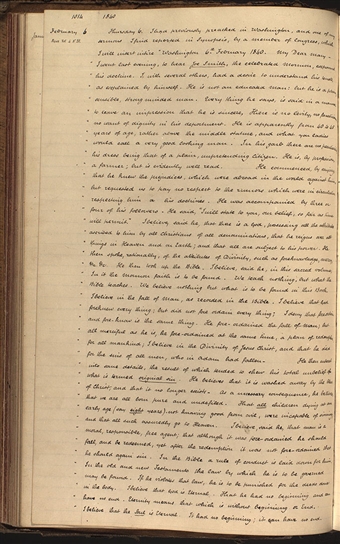 1016 1840
February 6 Thursday 6. I had previously preached in Washington, and one of my
sermons I find reported in Synopsis, by a member of Congress, which
I will insert entire "Washington 6th February 1840. My Dear Mary –
"I went last evening, to hear Joe Smith, the celebrated Mormon, expound
his doctrine. I, with several others, had a desire to understand his tenets
as explained by himself. He is not an educated man: but he is a plain,
sensible, strong minded man. Every thing he says, is said in a manner
to leave an impression that he is sincere, There is no levity, no fanaticism,
no want of dignity in his deportment. He is apparently from 40 to 45
years of age, rather above the middle stature, and what you ladies
would call a very good looking man. In his garb there are no peculiarities
his dress being that of a plain, unpretending citizen. He is, by profession
a farmer; but is evidently well read. He commenced, by saying,
that he knew the prejudices, which were abroad in the world against him
but requested us to pay no respect to the rumors which were in circulation
respecting him or his doctrines. He was accompanied by three or
four of his followers. He said, "I will state to you, our belief, so far as time
will permit." I believe, said he, that there is a God, possessing all the attributes
ascribed to him by all Christians of all denominations, that he reigns over all
things in Heaven and on Earth; and that all are subject to his power. He
then spoke, rationally, of the attributes of Divinity, such as foreknowledge, mercy
&c &c. He then took up the Bible. I believe, said he, in this sacred volume
In it the Mormon faith is to be found. We teach nothing, but what the
Bible teaches. We believe nothing but what is to be found in this Book.
I believe in the fall of man, as recorded in the Bible. I believe that God
foreknew every thing; but did not fore ordain every thing; I deny that foreordain
and fore know is the same thing. He fore-ordained the fall of man; but
all merciful as he is, he fore-ordained at the same time, a plan of redemption
for all mankind, I believe in the Divinity of Jesus Christ, and that he died
for the sins of all men, who in Adam had fallen. He then entered
into some details, the result of which tended to show his total unbelief of
what is termed original sin. He believes that it is washed away by the blood
of Christ, and that it no longer exists. As a necessary consequence, he believes
that we are all born pure and undefiled. That all children dying at an
early age (say eight years), not knowing good from evil, were incapable of sinning
and that all such assuredly go to Heaven. I believe, said he, that man is a
moral, responsible, free agent; that although it was fore-ordained he should
fall, and be redeemed, yet after the redemption it was not fore-ordained that
he should again sin. In the Bible a rule of conduct is laid down for him
In the old and new Testaments the law by which he is to be governed
may be found. If he violates that law, he is to be punished for the deeds done
in the body. I believe that God is Eternal. That he had no beginning and can
have no end. Eternity means that which is without beginning or End,
I believe that the Soul is Eternal. It had no beginning; it can have no end.